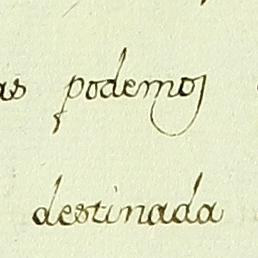 as podemos
destinada